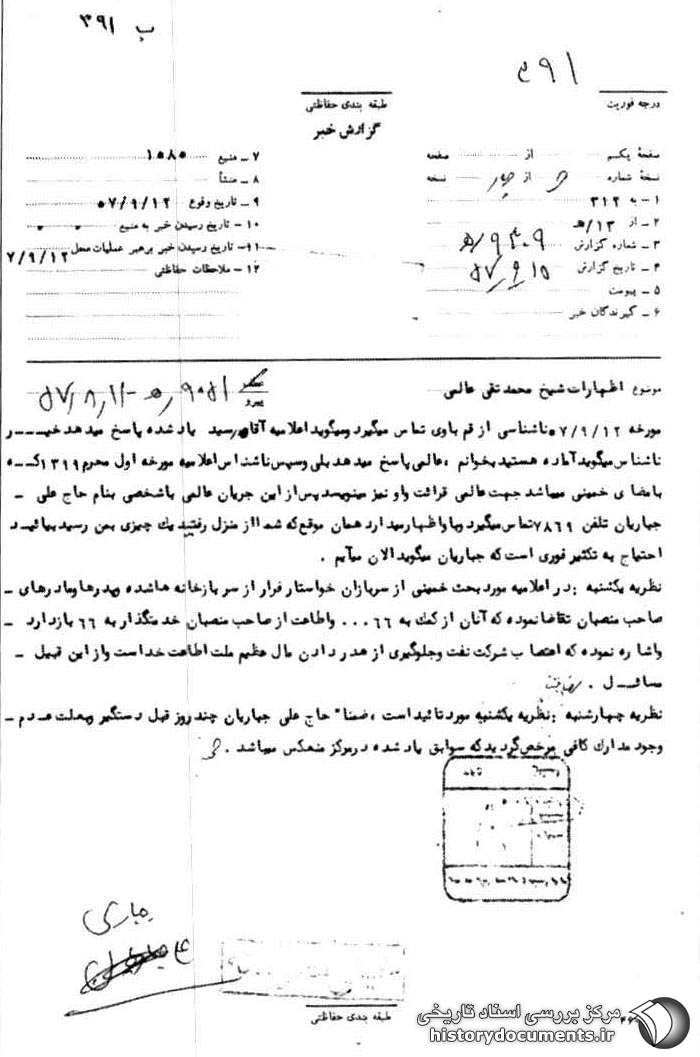 ب ۳۹۱
۳۹۱
درجه فوریت
طبقه بندی حفاظتی
گزارش خبر
صفحهٔ یکسم از صفحه
نسخهٔ شماره از نسخه
۱ - به ۳۱۲
۲ - از ۱۳/هـ
۳ - شماره گزارش
۴ - تاریخ گزارش
۵ - پیوست
۶ - گیرندگان خبر
۷ - منبع ۱۰۸۰
۸ - منشأ
۹ - تاریخ وقوع ۵۷/۹/۱۲
۱۰ - تاریخ رسیدن خبر به منبع
۱۱ - تاریخ رسیدن خبر برهبر عملیات محل ۵۷/۹/۱۲
۱۲ - ملاحظات حفاظتی
موضوع اظهارات شیخ محمد تقی عالمی
مورخه ۵۷/۹/۱۲ ناشناسی از قم باوی تماس میگیرد ومیگوید اعلامیه آقای رسید یاد شده پاسخ میدهد خیــر
ناشناس میگوید آماده هستید بخوانم ، عالمی پاسخ میدهد بلی وسپس ناشناس اعلامیه مورخه اول محرم ۱۳۹۹ کــه
بامضای خمینی میباشد جهت عالمی قرائت واو نیز مینویسد پس از این جریان عالمی باشخصی بنام حاج علی -
جباریان تلفن ۷۸۶۹ تماس میگیرد وباواظهار میدارد همان موقع که شما از منزل رفتید یک چیزی بمن رسید بیائیــد
احتیاج به تکثیر فوری است که جباریان میگوید الان میآیم .
نظریه یکشنبه : در اعلامیه مورد بحث خمینی از سربازان خواستار فرار از سربازخانه ها شده وپدرها ومادرهای -
صاحب منصبان تقاضا نموده که آنان از کمک به ۶۶ ... واطاعت از صاحب منصبان خدمتگذار به ۶۶ باز دارد -
واشاره نموده که اعتصاب شرکت نفت وجلوگیری از هدر دادن مال عظیم ملت اطاعت خداست واز این قبیل -
مسائــل .
نظریه چهارشنبه : نظریه یکشنبه مورد تائید است ، ضمنا" حاج علی جباریان چند روز قبل دستگیر وبعلت عــدم -
وجود مدارک کافی مرخص گردید که سوابق یاد شده در مرکز منعکس میباشد .
طبقه بندی حفاظتی
مرکز بررسی اسناد تاریخی
historydocuments.ir